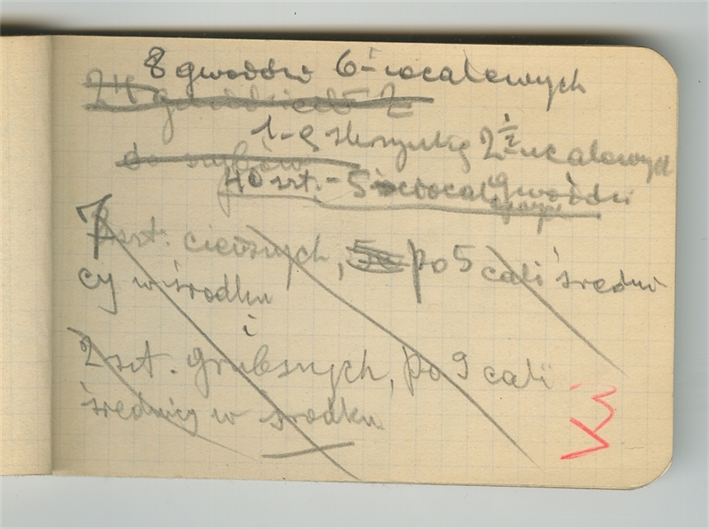 8 gwoździ 6-iocalowych
24
1-ą skrzynkę 2½ calowych
do
40 szt. - 5-ciocal. gwoździ
7 szt. cieńszych, po 5 cali średni
cy w środku
i
2 szt. grubszych, po 9 cali
średnicy w środku